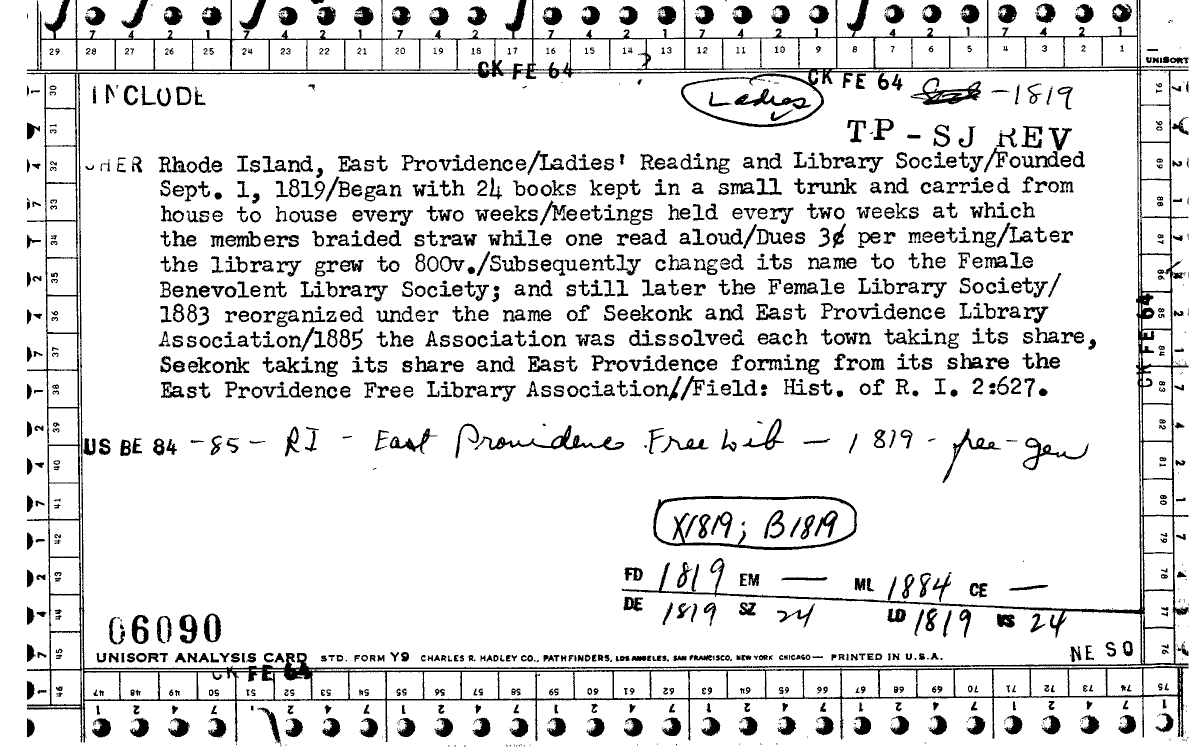 7 4 2 1 7 4 2 1 7 4 2 1 7 4 2 1 7 4 2 1 7 4 2 1 7 4 2 1
29 28 27 26 25 24 23 22 21 20 19 18 17 16 15 14 13 12 11 10 9 8 7 6 5 4 3 2 1
UNISORT
CK FE 64 CK FE 64
INCLUDE Ladies -1819
TP - SJ REV
Rhode Island, East Providence/Ladies' Reading and Library Society/Founded
Sept. 1, 1819/Began with 24 books kept in a small trunk and carried from
house to house every two weeks/Meetings held every two weeks at which
the members braided straw while one read aloud/Dues 3¢ per meeting/Later
the library grew to 800v./Subsequently changed its name to the Female
Benevolent Library Society; and still later the Female Library Society/
1883 reorganized under the name of Seekonk and East Providence Library
Association/1885 the Association was dissolved each town taking its share,
Seekonk taking its share and East Providence forming from its share the
East Providence Free Library Association//Field: Hist. of R. I. 2:627.
US BE 84 -85 - RI - East Providence Free Lib - 1819 - free - gen
X1819; B1819
FD 1819 EM — ML 1884 CE —
DE 1819 SZ 24 LD 1819 VS 24
06090
UNISORT ANALYSIS CARD STD. FORM Y9 CHARLES R. HADLEY CO., PATHFINDERS, LOS ANGELES, SAN FRANCISCO, NEW YORK CHICAGO— PRINTED IN U.S.A.
NE SO
CK FE 64
CK FE 64
30
31
32
33
34
35
36
37
38
39
40
41
42
43
44
45
46
91
90
89
88
87
86
85
84
83
82
81
80
79
78
77
76
47 48 49 50 51 52 53 54 55 56 57 58 59 60 61 62 63 64 65 66 67 68 69 70 71 72 73 74 75